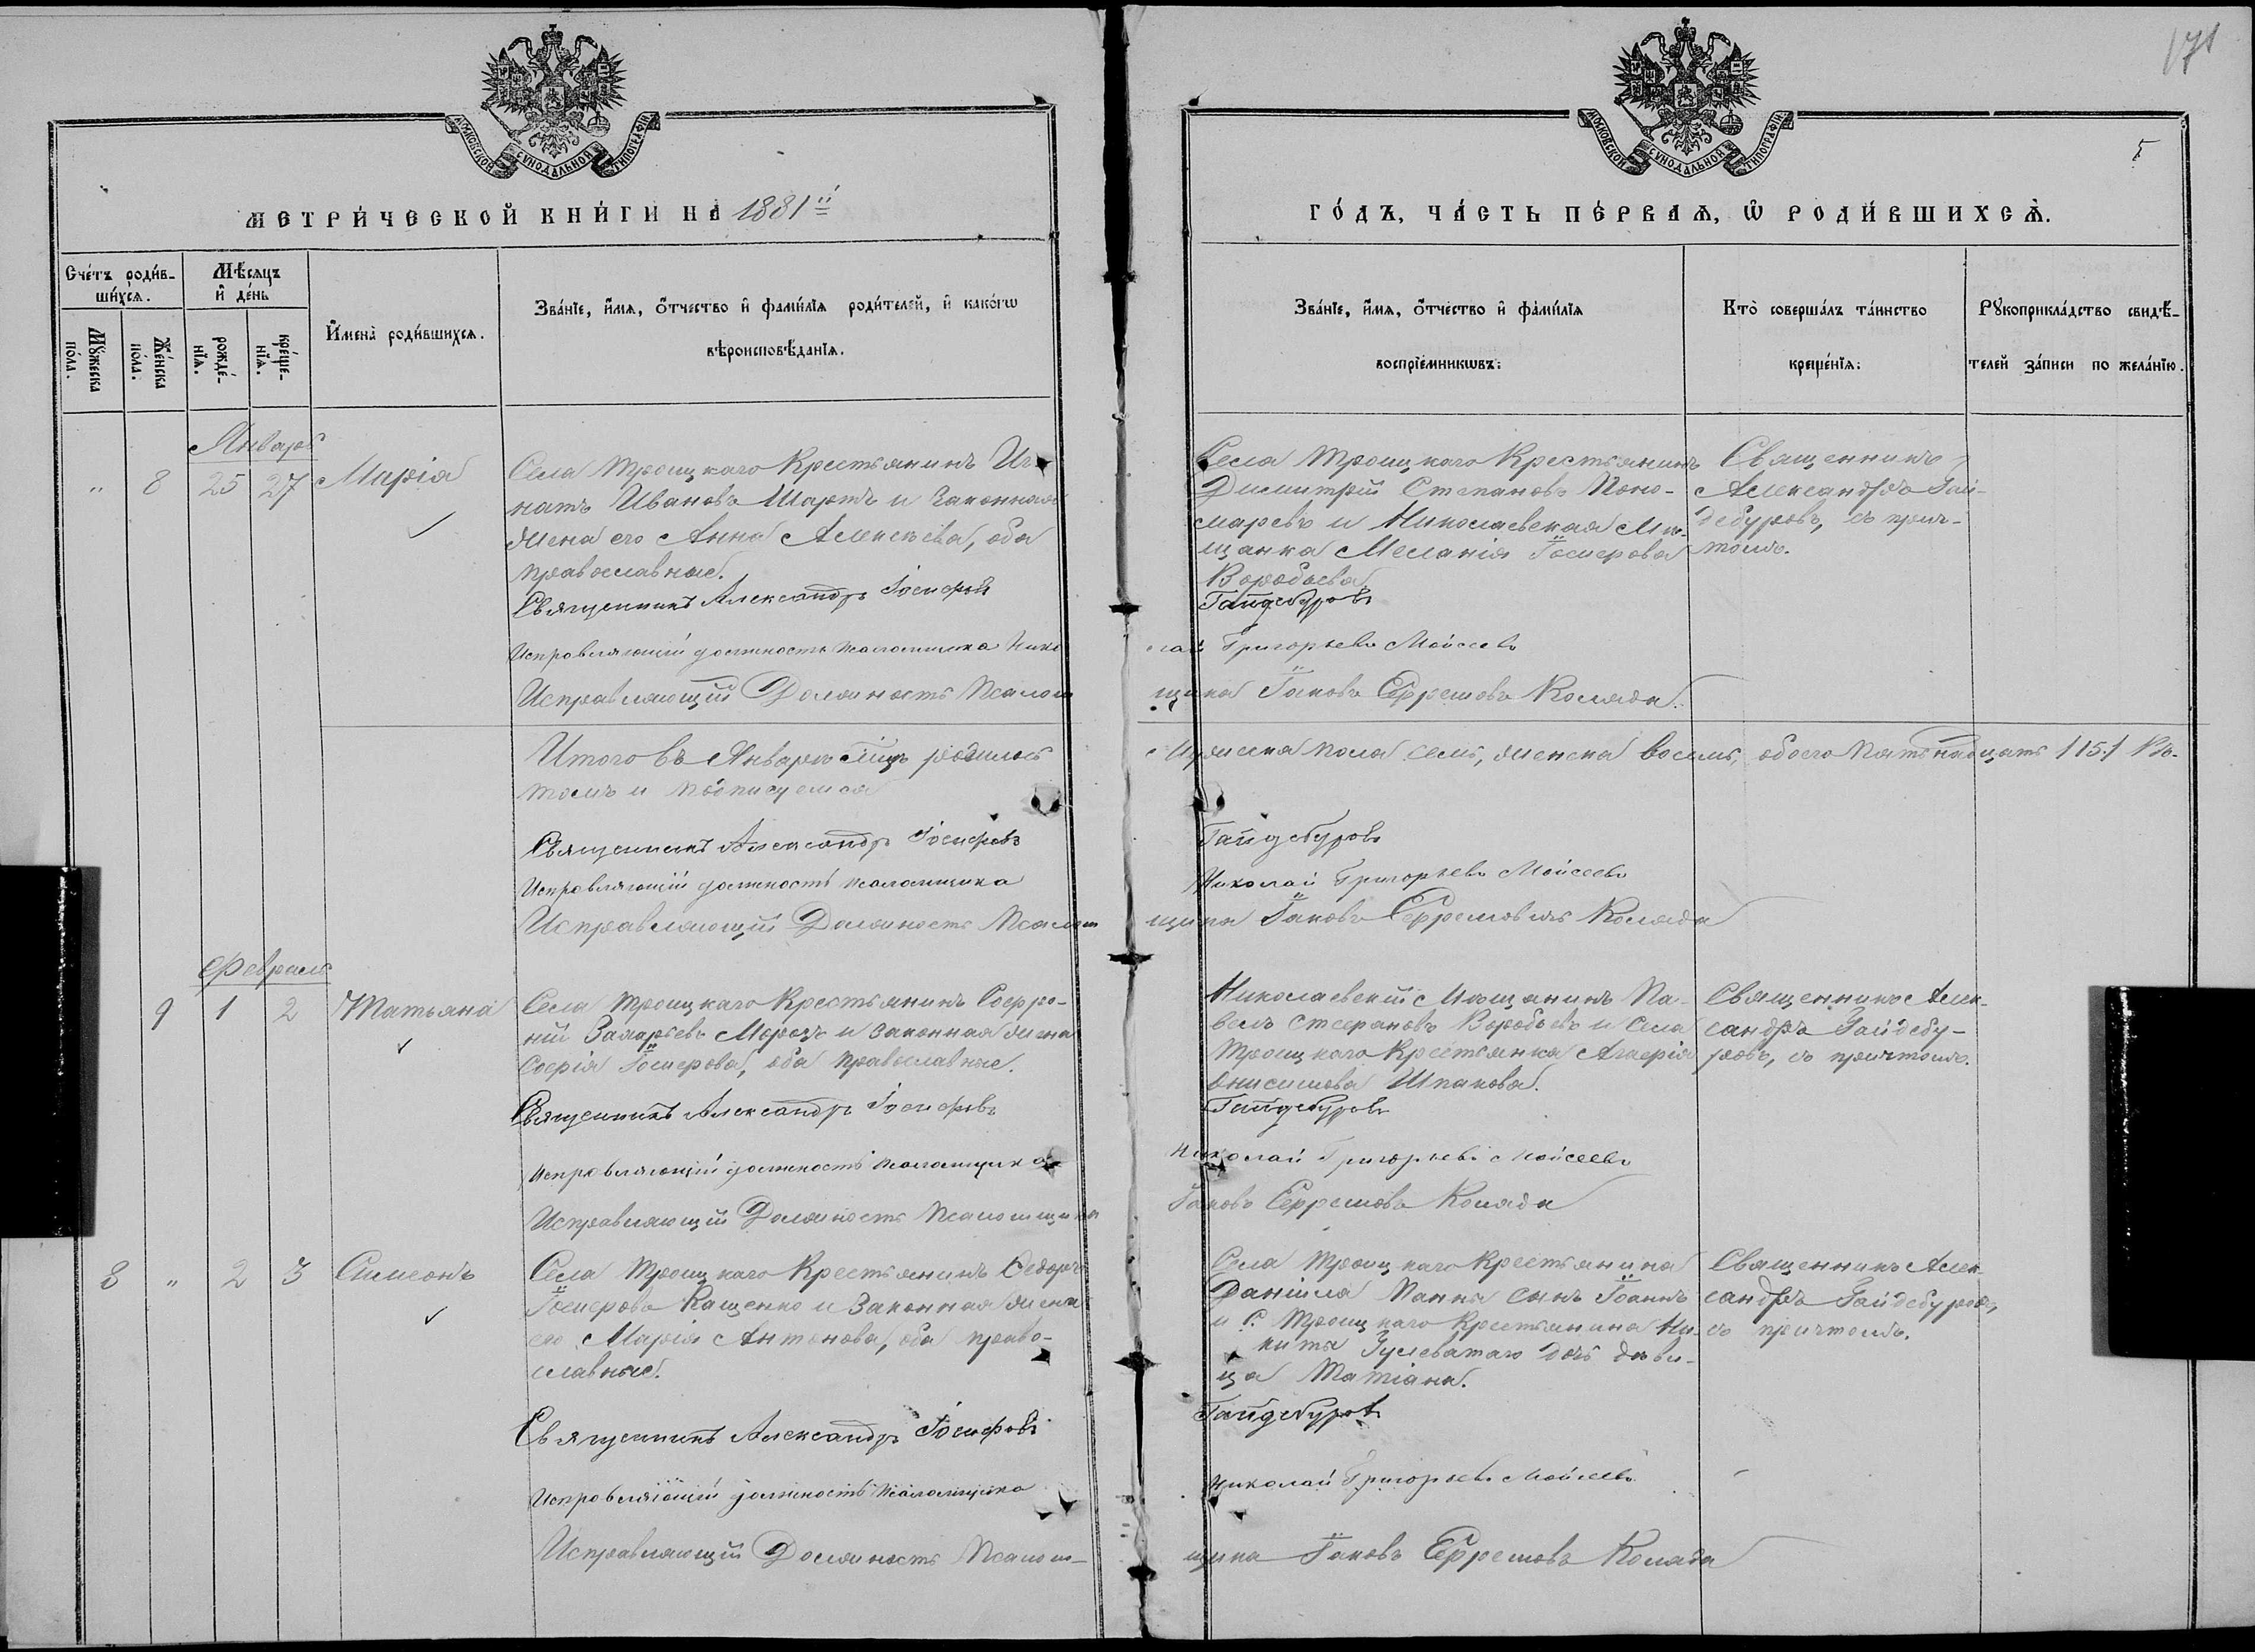 171
5
МОСКОВСКОЙ СѴНОДАЛЬНОЙ ТИПОГРАФІИ
МОСКОВСКОЙ СѴНОДАЛЬНОЙ ТИПОГРАФІИ
МЕТРИ́ЧЕСКОЙ КНИ́ГИ НА 1881й
ГО́ДЪ, ЧА́СТЬ ПЕ́РВАѦ, Ѡ РОДИ́ВШИХСѦ.
Сче́тъ роди́в-
ши́хсѧ.
Мѣ́сѧцъ
и҆ де́нь
Мꙋ́жеска по́ла.
Же́нска по́ла.
рожде́-нїѧ.
креще́-нїѧ.
И҆мена̀ роди́вшихсѧ.
Зва́нїе, и҆́мѧ, ѻ҆́тчество и҆ фамѝлїѧ роди́телей, и҆ како́гѡ
вѣроисповѣ́данїѧ.
Зва́нїе, и҆́мѧ, ѻ҆́тчество и҆ фами́лїѧ
воспрїе́мникѡвъ:
Кто̀ соверша́лъ та́инство
креще́нїѧ:
Рꙋкоприкла́дство свидѣ́-
телей за́писи по жела́нїю.
Январь
" 8 25 27 Марія
Села Троицкаго Крестьянинъ Иг-
натъ Ивановъ Шартъ и законная
жена его Анна Алексѣева, оба
православные.
Священникъ Александръ Іосифовъ
Исправляющій должность псаломщика Нико
Исправляющій Должность Псалом
Села Троицкаго Крестьянинъ
Димитрій Степановъ Поно-
маревъ и Николаевская Мѣ-
щанка Меланія Іосифова
Воробьева.
Гайдебуровъ
лай Григорьевъ Мойсеевъ
щика Іаковъ Ефремовъ Коляда.
Священникъ
Александръ Гай-
дебуровъ, съ прич-
томъ.
Итого въ Январѣ м-цѣ родилось
Мужеска пола семь, женска восемь, обоего пятьнадцать /15./ Въ
томъ и подписуемся
Священникъ Александръ Іосифовъ
Гайдебуровъ
Исправляющій должность псаломщика
Николай Григорьевъ Мойсеевъ
Исправляющій Должность Псалом
щика Іаковъ Ефремовъ Коляда
Февраль
9 1 2 Татьяна
Села Троицкаго Крестьянинъ Софро-
ній Захарьевъ Морозъ и законная жена
Софія Іосифова, оба православные.
Священникъ Александръ Іосифовъ
Исправляющій должность псаломщика
Исправляющій Должность Псаломщика
Николаевскій Мѣщанинъ Па-
велъ Стефановъ Воробьевъ и Села
Троицкаго Крестьянка Агафія
Онисимова Шпакова.
Гайдебуровъ
Николай Григорьевъ Мойсеевъ
Іаковъ Ефремовъ Коляда
Священникъ Алек-
сандръ Гайдебу-
ровъ, съ причтомъ.
8 " 2 3 Симеонъ
Села Троицкаго Крестьянинъ Ѳедоръ
Іосифовъ Кащенко и законная жена
его Марія Антонова, оба право-
славные.
Священникъ Александръ Іосифовъ
Исправляющій должность псаломщика
Исправляющій Должность Псалом-
Села Троицкаго Крестьянина
Даніила Панка сынъ Іоаннъ
и С. Троицкаго Крестьянина Ни-
киты Гулеватаго дочь дѣви-
ца Татіана.
Гайдебуровъ
Николай Григорьевъ Мойсеевъ
щика Іаковъ Ефремовъ Коляда
Священникъ Алек-
сандръ Гайдебуровъ,
съ причтомъ.